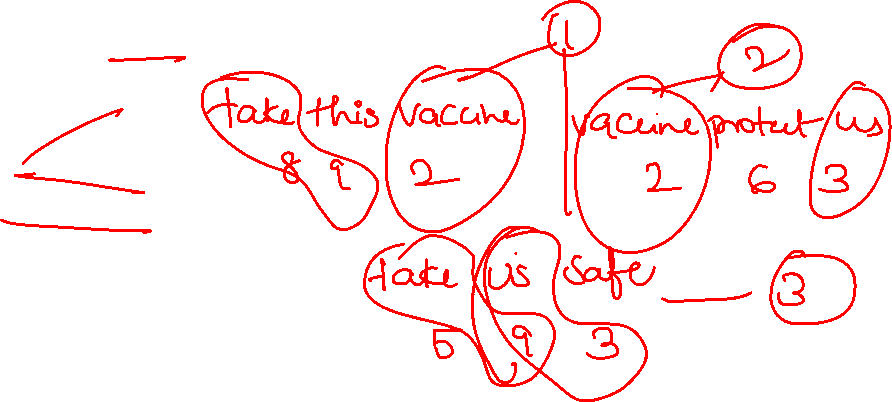 1
2
take this vaccine vaccine protect us
8 9 2 2 6 3
take us safe 3
5 9 3